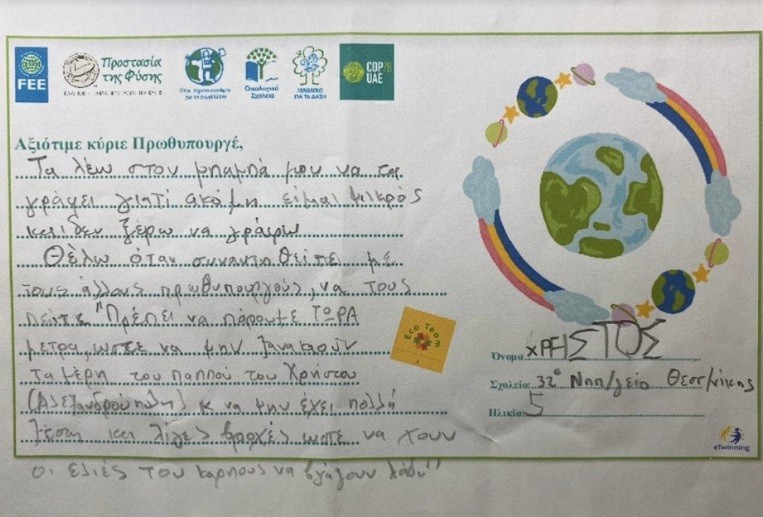 FEE
Προστασία
της Φύσης
Οικολογικά
Σχολεία
ΜΑΘΑΙΝΩ
ΓΙΑ ΤΑ ΔΑΣΗ
COP28
UAE
Αξιότιμε κύριε Πρωθυπουργέ,
Τα λέω στον μπαμπά μου να τα
γράφει γιατί ακόμη είμαι μικρός
και δεν ξέρω να γράφω
Θέλω όταν συναντηθείτε με
τους άλλους πρωθυπουργούς, να τους
πείτε "Πρέπει να πάρουμε ΤΩΡΑ
μέτρα, ώστε να μην ξανακαούν
τα μέρη του παππού του Χρήστου
(Αλεξανδρούπολη) κ να μην έχει πολλή
ζέστη και λίγες βροχές ώστε να χουν
οι ελιές του καρπους να βγάζουν λάδι"
Eco Team
Όνομα: ΧΡΗΣΤΟΣ
Σχολείο: 32ο Νηπ/γείο Θεσ/νίκης
Ηλικία: 5
eTwinning